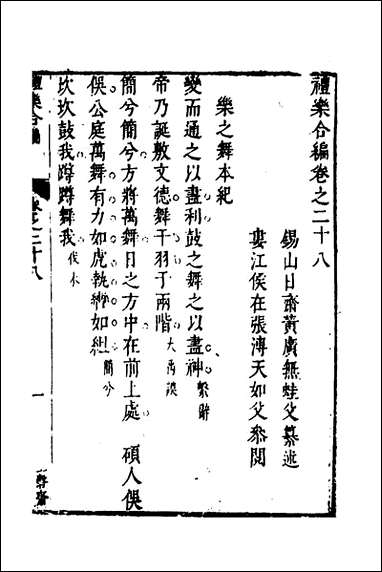 禮樂合編卷之二十八
錫山日齋黃廣無蛙父纂述
婁江侯在張溥天如父參閱
樂之舞本紀
變而通之以盡利鼓之舞之以盡神繫辭
帝乃誕敷文德舞干羽于兩階大禹謨
簡兮簡兮方將萬舞日之方中在前上處 碩人俁
俁公庭萬舞有力如虎執轡如組簡兮
坎坎鼓我蹲蹲舞我伐木
禮樂合編
卷之二十八
一